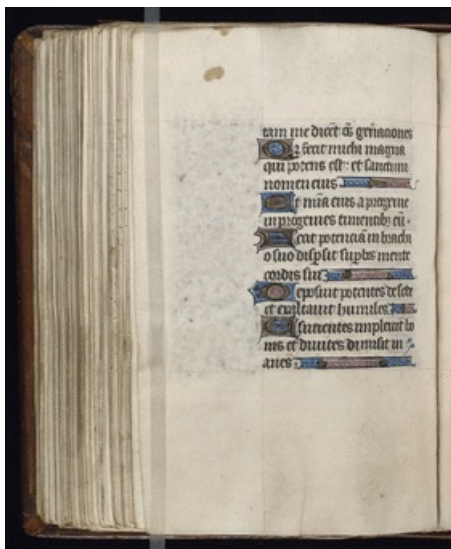 tam me dicēt oēs gñaciones
Q2 fecit michi magna
qui potens est: et sanctum
nomen eius
Et mīa eius a progenie
in progenies timentibꝫ eū.
Fecit potenciā in brachi
o suo dispsit supbos mente
cordis sui
Deposuit potentes de sede
et exaltauit humiles
Esurientes impleuit bo
nis et diuites dimisit in
anes.